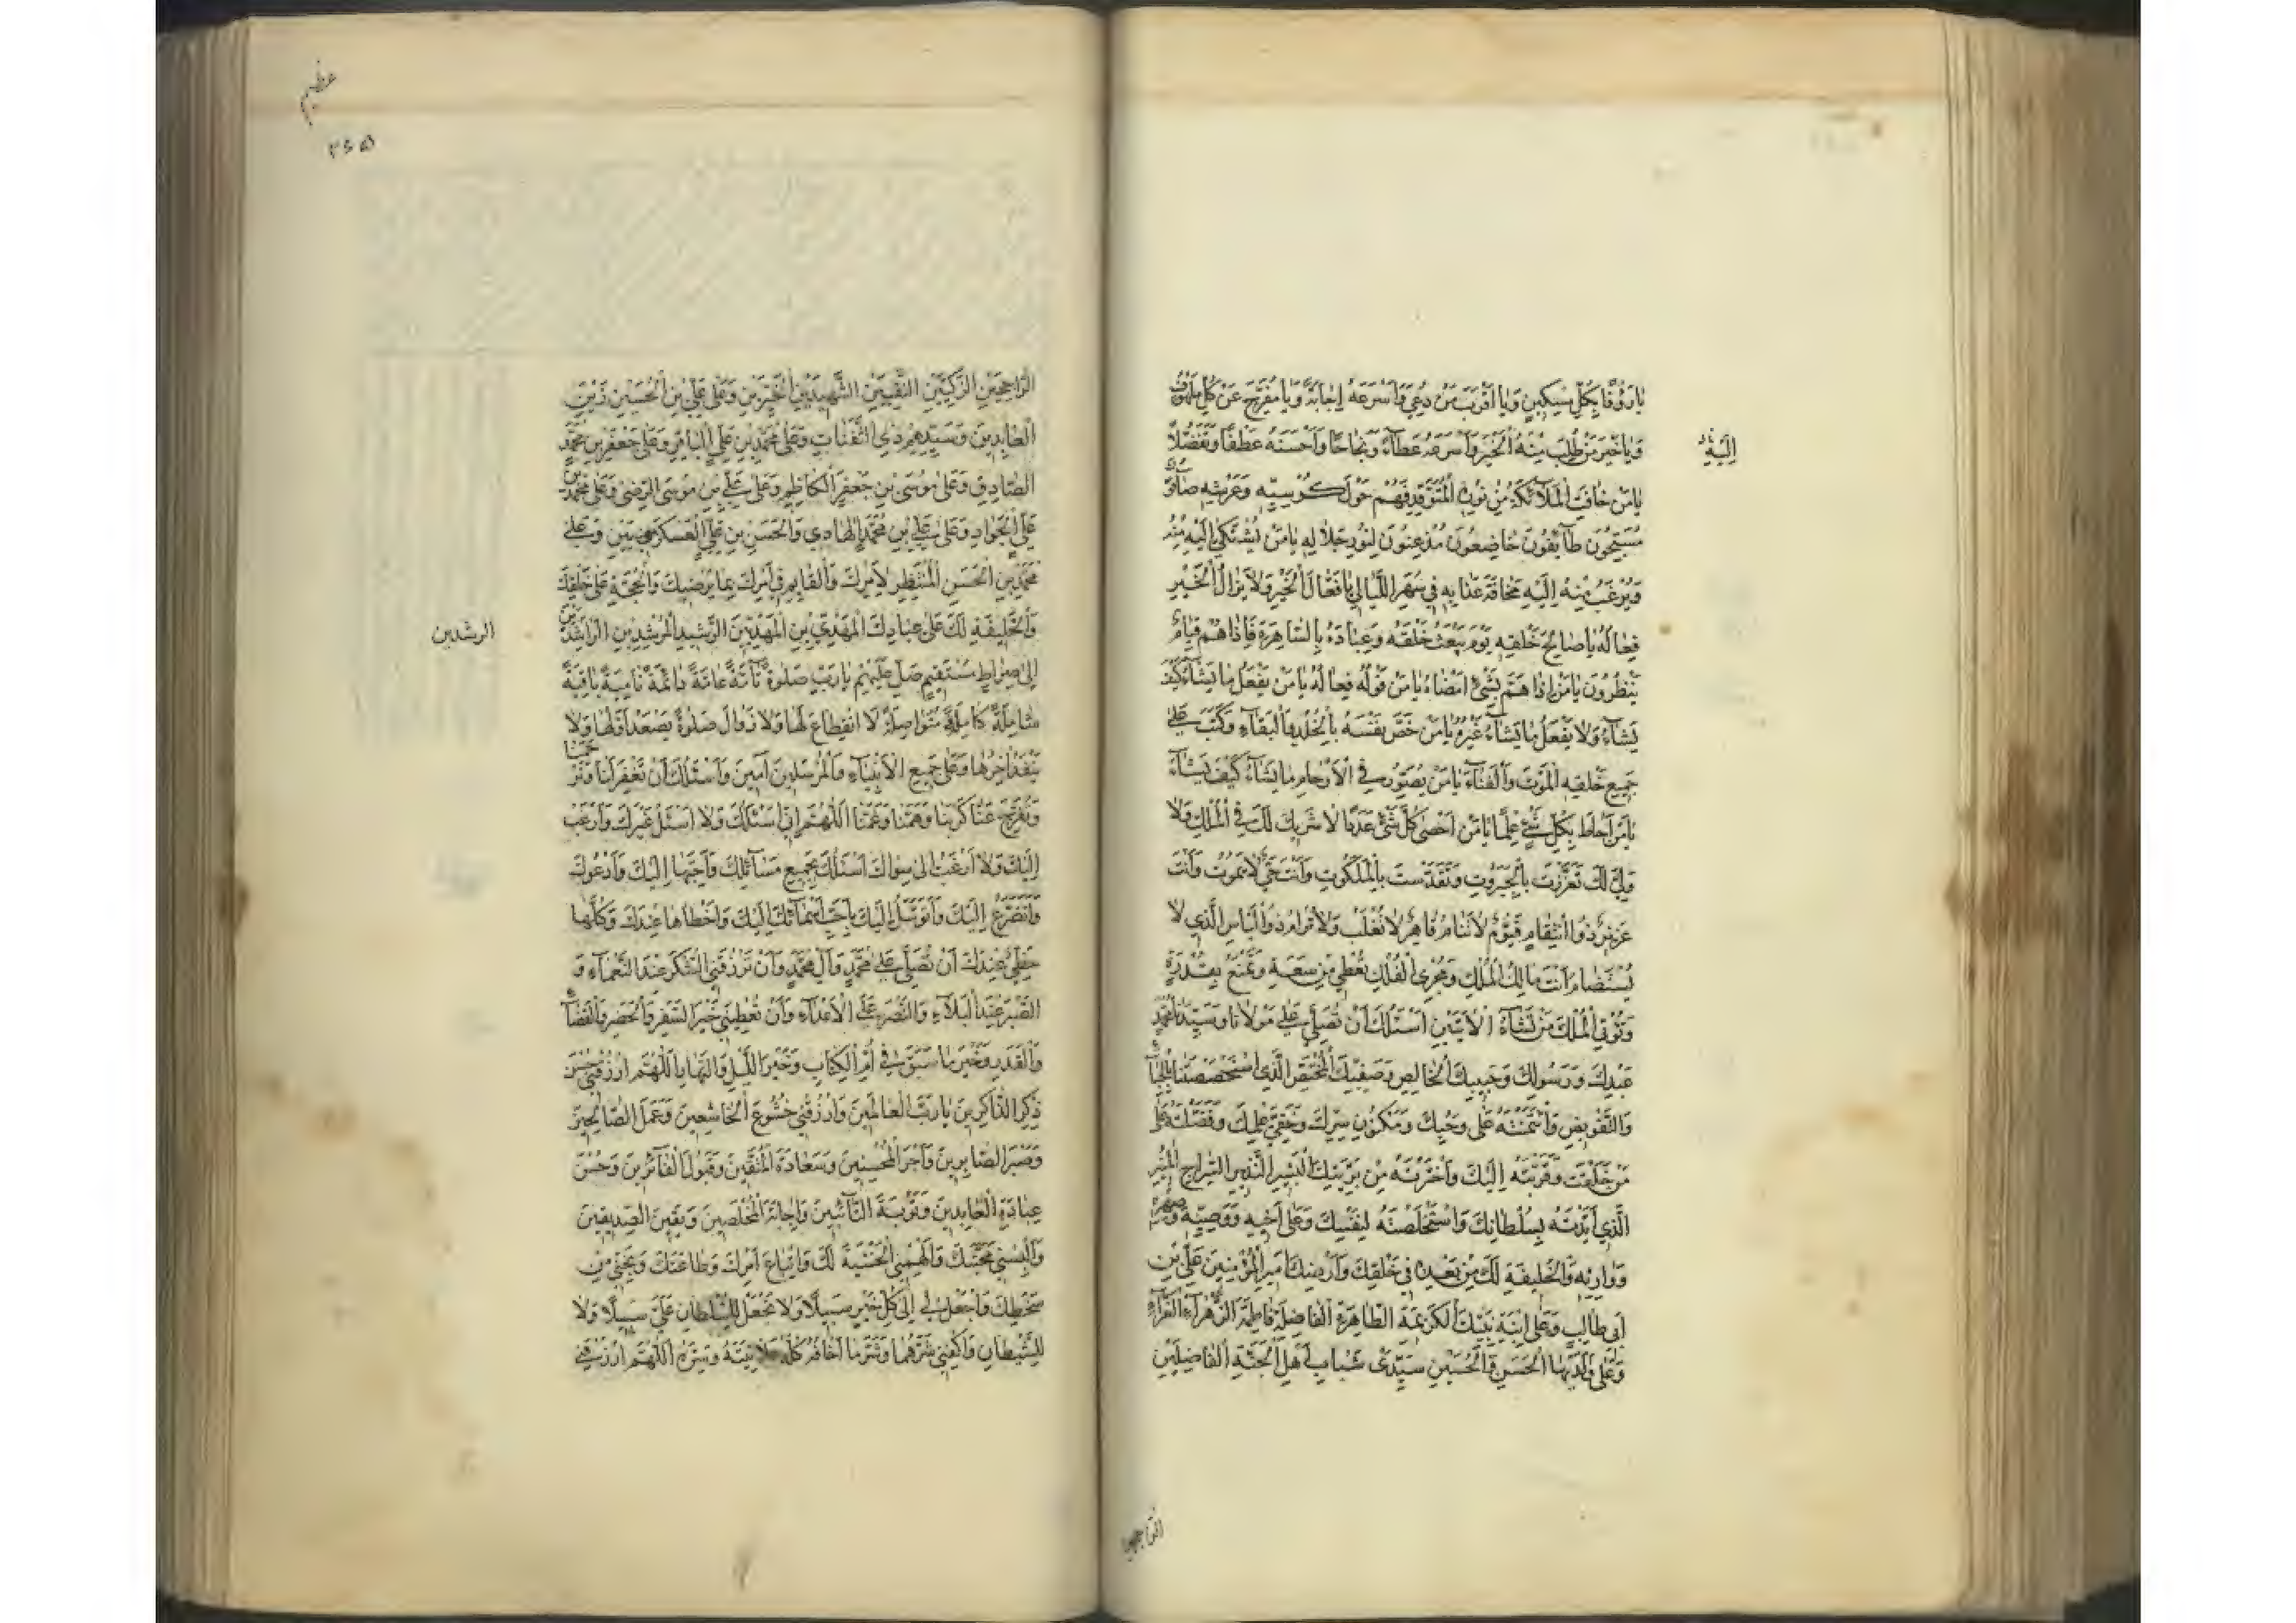 يٰا رَؤُفًا بِكُلِّ مِسْكِينٍ وَيٰا اَقْرَبَ مَنْ دُعِيَ وَاَسْرَعَهُ اِجٰابَةً وَيٰا مُفَرِّجَ عَنْ كُلِّ مَلْهُوفٍ
وَيٰا خَيْرَ مَنْ طُلِبَ مِنْهُ الْخَيْرُ وَاَسْرَعَهُ عَطٰاءً وَنَجٰاحًا وَاَحْسَنَهُ عَطْفًا وَتَفَضُّلًا
يٰا مَنْ خٰافَتِ الْمَلآئِكَةُ مِنْ نُورِهِ الْمُتَوَقِّدِ فَهُمْ حَوْلَ كُرْسِيِّهِ وَعَرْشِهِ صٰآفُّونَ
مُسَبِّحُونَ طٰآئِفُونَ خٰاضِعُونَ مُذْعِنُونَ لِنُورِ جَلٰالِهِ يٰا مَنْ يُشْتَكىٰ اِلَيْهِ مِنْهُ
وَيُرْغَبُ مِنْهُ اِلَيْهِ مَخٰافَةَ عَذٰابِهِ فِي سَهَرِ اللَّيٰالِي يٰا فَعّٰالَ الْخَيْرِ وَلٰا يَزٰالُ الْخَيْرُ
فِعٰالَهُ يٰا صٰالِحَ خَلْقِهِ يَوْمَ يَبْعَثُ خَلْقَهُ وَعِبٰادَهُ بِالسّٰاهِرَةِ فَاِذٰا هُمْ قِيٰامٌ
يَنْظُرُونَ يٰا مَنْ اِذٰا هَمَّ بِشَيْءٍ اَمْضٰاهُ يٰا مَنْ قَوْلُهُ فِعٰالُهُ يٰا مَنْ يَفْعَلُ مٰا يَشٰآءُ كَيْفَ
يَشٰآءُ وَلٰا يَفْعَلُ مٰا يَشٰآءُ غَيْرُهُ يٰا مَنْ خَصَّ نَفْسَهُ بِالْخُلْدِ وَالْبَقٰآءِ وَكَتَبَ عَلىٰ
جَمِيعِ خَلْقِهِ الْمَوْتَ وَالْفَنٰآءَ يٰا مَنْ يُصَوِّرُ فِي الْاَرْحٰامِ مٰا يَشٰآءُ كَيْفَ يَشٰآءُ
يٰا مَنْ اَحٰاطَ بِكُلِّ شَيْءٍ عِلْمًا يٰا مَنْ اَحْصىٰ كُلَّ شَيْءٍ عَدَدًا لٰا شَرِيكَ لَكَ فِي الْمُلْكِ وَلٰا
وَلِيَّ لَكَ تَعَزَّزْتَ بِالْجَبَرُوتِ وَتَقَدَّسْتَ بِالْمَلَكُوتِ وَاَنْتَ حَيٌّ لٰا يَمُوتُ وَاَنْتَ
عَزِيزٌ ذُو انْتِقٰامٍ قَيُّومٌ لٰا تَنٰامُ قٰاهِرٌ لٰا تُغْلَبُ وَلٰا تُرٰامُ ذُو الْبَأْسِ الَّذِي لٰا
يُسْتَضٰامُ اَنْتَ مٰالِكُ الْمُلْكِ وَمُجْرِي الْفُلْكِ تُعْطِي مِنْ سَعَةٍ وَتَمْنَعُ بِقُدْرَةٍ
وَتُؤْتِي الْمُلْكَ مَنْ تَشٰآءُ الْآيَتَيْنِ اَسْئَلُكَ اَنْ تُصَلِّيَ عَلىٰ مَوْلٰانٰا وَسَيِّدِنٰا مُحَمَّدٍ
عَبْدِكَ وَرَسُولِكَ وَحَبِيبِكَ الْخٰالِصِ وَصَفِيِّكَ الْمُخْتَصِّ الَّذِي اسْتَخْصَصْتَهُ بِالْحِبٰآءِ
وَالتَّفْوِيضِ وَائْتَمَنْتَهُ عَلىٰ وَحْيِكَ وَمَكْنُونِ سِرِّكَ وَخَفِيِّ عِلْمِكَ وَفَضَّلْتَهُ عَلىٰ
مَنْ خَلَقْتَ وَقَرَّبْتَهُ اِلَيْكَ وَاخْتَرْتَهُ مِنْ بَرِيَّتِكَ الْبَشِيرِ النَّذِيرِ السِّرٰاجِ الْمُنِيرِ
الَّذِي اَيَّدْتَهُ بِسُلْطٰانِكَ وَاسْتَخْلَصْتَهُ لِنَفْسِكَ وَعَلىٰ اَخِيهِ وَوَصِيِّهِ وَصِهْرِهِ
وَوٰارِثِهِ وَالْخَلِيفَةِ لَكَ مِنْ بَعْدِهِ فِي خَلْقِكَ وَاَرْضِكَ اَمِيرِ الْمُؤْمِنِينَ عَلِيِّ بْنِ
اَبِي طٰالِبٍ وَعَلَى ابْنَةِ نَبِيِّكَ الْكَرِيمَةِ الطّٰاهِرَةِ الْفٰاضِلَةِ فٰاطِمَةَ الزَّهْرٰآءِ الْغَرّٰآءِ
وَعَلىٰ وَلَدَيْهَا الْحَسَنِ وَالْحُسَيْنِ سَيِّدَيْ شَبٰابِ اَهْلِ الْجَنَّةِ الْفٰاضِلَيْنِ
عظيم
الرّٰاجِحَيْنِ الزَّكِيَّيْنِ التَّقِيَّيْنِ الشَّهِيدَيْنِ الْخَيِّرَيْنِ وَعَلىٰ عَلِيِّ بْنِ الْحُسَيْنِ زَيْنِ
الْعٰابِدِينَ وَسَيِّدِهِمْ ذِي الثَّفَنٰاتِ وَعَلىٰ مُحَمَّدِ بْنِ عَلِيٍّ الْبٰاقِرِ وَعَلىٰ جَعْفَرِ بْنِ مُحَمَّدٍ
الصّٰادِقِ وَعَلىٰ مُوسَى بْنِ جَعْفَرٍ الْكٰاظِمِ وَعَلىٰ عَلِيِّ بْنِ مُوسَى الرِّضىٰ وَعَلىٰ مُحَمَّدِ بْنِ
عَلِيٍّ الْجَوٰادِ وَعَلىٰ عَلِيِّ بْنِ مُحَمَّدٍ الْهٰادِي وَالْحَسَنِ بْنِ عَلِيٍّ الْعَسْكَرِيَّيْنِ وَعَلىٰ
مُحَمَّدِ بْنِ الْحَسَنِ الْمُنْتَظِرِ لِاَمْرِكَ وَالْقٰايِمِ فِي اَرْضِكَ بِمٰا يُرْضِيكَ وَالْحُجَّةِ عَلىٰ خَلْقِكَ
وَالْخَلِيفَةِ لَكَ عَلىٰ عِبٰادِكَ الْمَهْدِيِّ بْنِ الْمَهْدِيِّينَ الرَّشِيدِ الْمُرْشِدِ بْنِ الرّٰاشِدِينَ
الرشدين
اِلىٰ صِرٰاطٍ مُسْتَقِيمٍ صَلِّ عَلَيْهِمْ يٰا رَبِّ صَلٰوةً تٰآمَّةً عٰامَّةً دٰائِمَةً نٰامِيَةً بٰاقِيَةً
شٰامِلَةً كٰامِلَةً مُتَوٰاصِلَةً لَا انْقِطٰاعَ لَهٰا وَلٰا زَوٰالَ صَلٰوةً يَصْعَدُ اَوَّلُهٰا وَلٰا
يَنْفَدُ اٰخِرُهٰا وَعَلىٰ جَمِيعِ الْاَنْبِيٰآءِ وَالْمُرْسَلِينَ اٰمِينَ وَاَسْئَلُكَ اَنْ تَغْفِرَ لَنٰا وَتَرْحَمَنٰا
وَتُفَرِّجَ عَنّٰا كَرْبَنٰا وَهَمَّنٰا وَغَمَّنٰا اَللّٰهُمَّ اِنِّي اَسْئَلُكَ وَلٰا اَسْئَلُ غَيْرَكَ وَاَرْغَبُ
اِلَيْكَ وَلٰا اَرْغَبُ اِلىٰ سِوٰاكَ اَسْئَلُكَ بِجَمِيعِ مَسٰآئِلِكَ وَاَحَبِّهٰا اِلَيْكَ وَاَدْعُوكَ
وَاَتَضَرَّعُ اِلَيْكَ وَاَتَوَسَّلُ اِلَيْكَ بِاَحَبِّ اَسْمٰآئِكَ اِلَيْكَ وَاَحْظٰاهٰا عِنْدَكَ وَكُلُّهٰا
حَظِيٌّ عِنْدَكَ اَنْ تُصَلِّيَ عَلىٰ مُحَمَّدٍ وَاٰلِ مُحَمَّدٍ وَاَنْ تَرْزُقَنِي الشُّكْرَ عِنْدَ النَّعْمٰآءِ وَ
الصَّبْرَ عِنْدَ الْبَلٰآءِ وَالنَّصْرَ عَلَى الْاَعْدٰآءِ وَاَنْ تُعْطِيَنِي خَيْرَ السَّفَرِ وَالْحَضَرِ وَالْقَضٰآءِ
وَالْقَدَرِ وَخَيْرَ مٰا سَبَقَ فِي اُمِّ الْكِتٰابِ وَخَيْرَ اللَّيْلِ وَالنَّهٰارِ اَللّٰهُمَّ ارْزُقْنِي حُسْنَ
ذِكْرِ الذّٰاكِرِينَ يٰا رَبَّ الْعٰالَمِينَ وَارْزُقْنِي خُشُوعَ الْخٰاشِعِينَ وَعَمَلَ الصّٰالِحِينَ
وَصَبْرَ الصّٰابِرِينَ وَاَجْرَ الْمُحْسِنِينَ وَسَعٰادَةَ الْمُتَّقِينَ وَقَبُولَ الْفٰآئِزِينَ وَحُسْنَ
عِبٰادَةِ الْعٰابِدِينَ وَتَوْبَةَ التّٰآئِبِينَ وَاِجٰابَةَ الْمُخْلَصِينَ وَيَقِينَ الصِّدِّيقِينَ
وَاَلْبِسْنِي مَحَبَّتَكَ وَاَلْهِمْنِي الْخَشْيَةَ لَكَ وَاتِّبٰاعَ اَمْرِكَ وَطٰاعَتَكَ وَنَجِّنِي مِنْ
سَخَطِكَ وَاجْعَلْ لِي اِلىٰ كُلِّ خَيْرٍ سَبِيلًا وَلٰا تَجْعَلْ لِلسُّلْطٰانِ عَلَيَّ سَبِيلًا وَلٰا
لِلشَّيْطٰانِ وَاكْفِنِي شَرَّهُمٰا وَشَرَّ مٰا اَخٰافُ كُلَّهُ عَلٰانِيَتَهُ وَسِرَّهُ اَللّٰهُمَّ ارْزُقْنِي